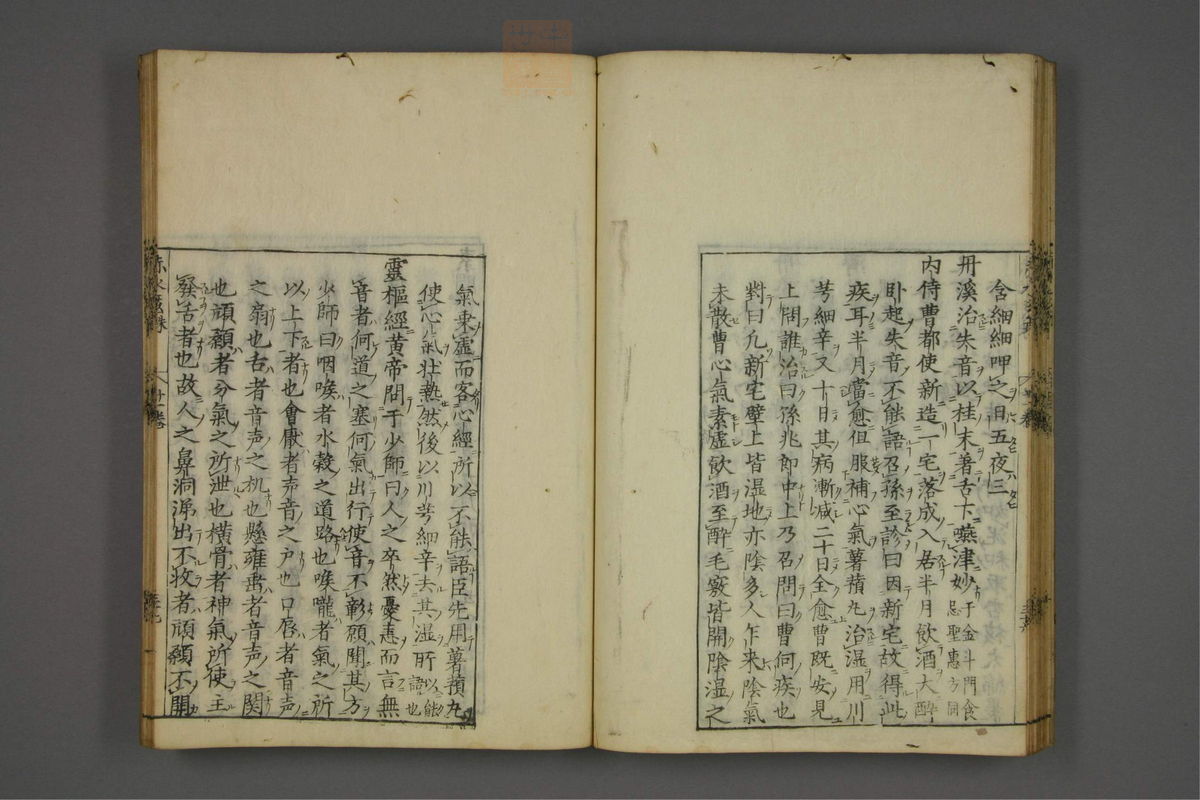 含細細呷之日五夜三
丹溪治失音以桂末著舌下嚥津妙于金斗門食忌聖惠方同
内侍曹都使新造一宅落成入居半月飲酒大醉
卧起失音不能語召孫至診曰因新宅故得此
疾耳半月當愈但服補心氣薯蕷丸治湿用川
芎細辛又十日其病漸减二十日全愈曹既安見
上問誰治曰孫兆郎中上乃召問曰曹何疾也
對曰凢新宅壁上皆湿地亦陰多人乍来陰氣
未散曹心氣素虚飲酒至醉毛竅皆開陰湿之
氣乗虚而客心經所以不能語臣先用薯蕷丸
使心氣壮熱然後以川芎細辛去其湿所以能語也
靈樞經黄帝問于少師曰人之卒然憂恚而言無
音者何道之塞何氣出行使音不彰願聞其方
少師曰咽喉者水穀之道路也喉嚨者氣之所
以上下者也會厭者声音之户也口唇者音声
之扇也舌者音声之机也懸雍垂者音声之関
也頏顙者分氣之所泄也横骨者神氣所使主
發舌者也故人之鼻洞涕出不收者頏顙不開
赤水玄珠